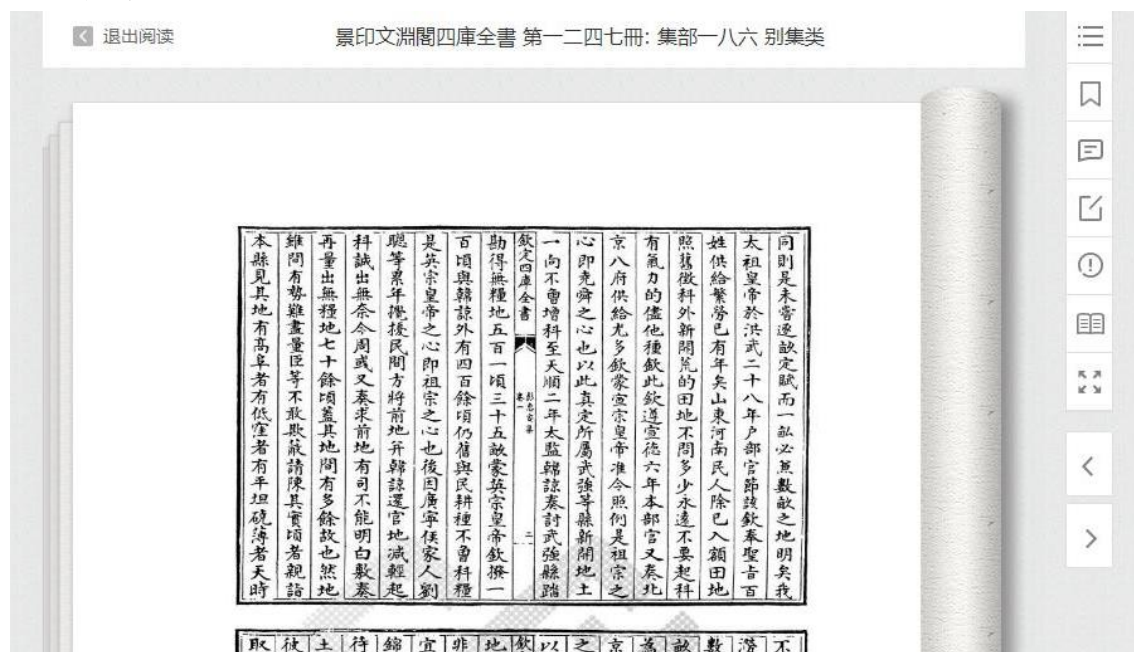 退出阅读
景印文淵閣四庫全書 第一二四七冊: 集部一八六 别集类
同則是未嘗逐畝定賦而一畝必兼數畝之地明矣我
太祖皇帝於洪武二十八年户部官節該欽奉聖㫖百
姓供給繁勞已有年矣山東河南民人除已入額田地
照舊徵科外新開荒的田地不問多少永遠不要起科
有氣力的儘他種欽此欽遵宣徳六年本部官又奏北
京八府供給尤多欽蒙宣宗皇帝准令照例是祖宗之
心即堯舜之心也以此真定所屬武強等縣新開地土
一向不曾增科至天順二年太監韓諒奏討武強縣踏
欽定四庫全書
卷一
二
勘得無糧地五百一頃三十五畝蒙英宗皇帝欽撥一
百頃與韓諒外有四百餘頃仍舊與民耕種不曾科糧
是英宗皇帝之心即祖宗之心也後因廣寧侯家人劉
聰等累年攪擾民間方將前地并韓諒還官地減輕起
科誠出無奈今周或又奏求前地有司不能明白敷奏
再量出無糧地七十餘頃蓋其地間有多餘故也然地
雖間有勢難盡量臣等不敢欺蔽請陳其實頃者親詣
本縣見其地有高阜者有低窪者有平坦磽薄者天時
不
數
畝
為
京
之
以
欽
地
非
宜
錦
待
土
彼
取